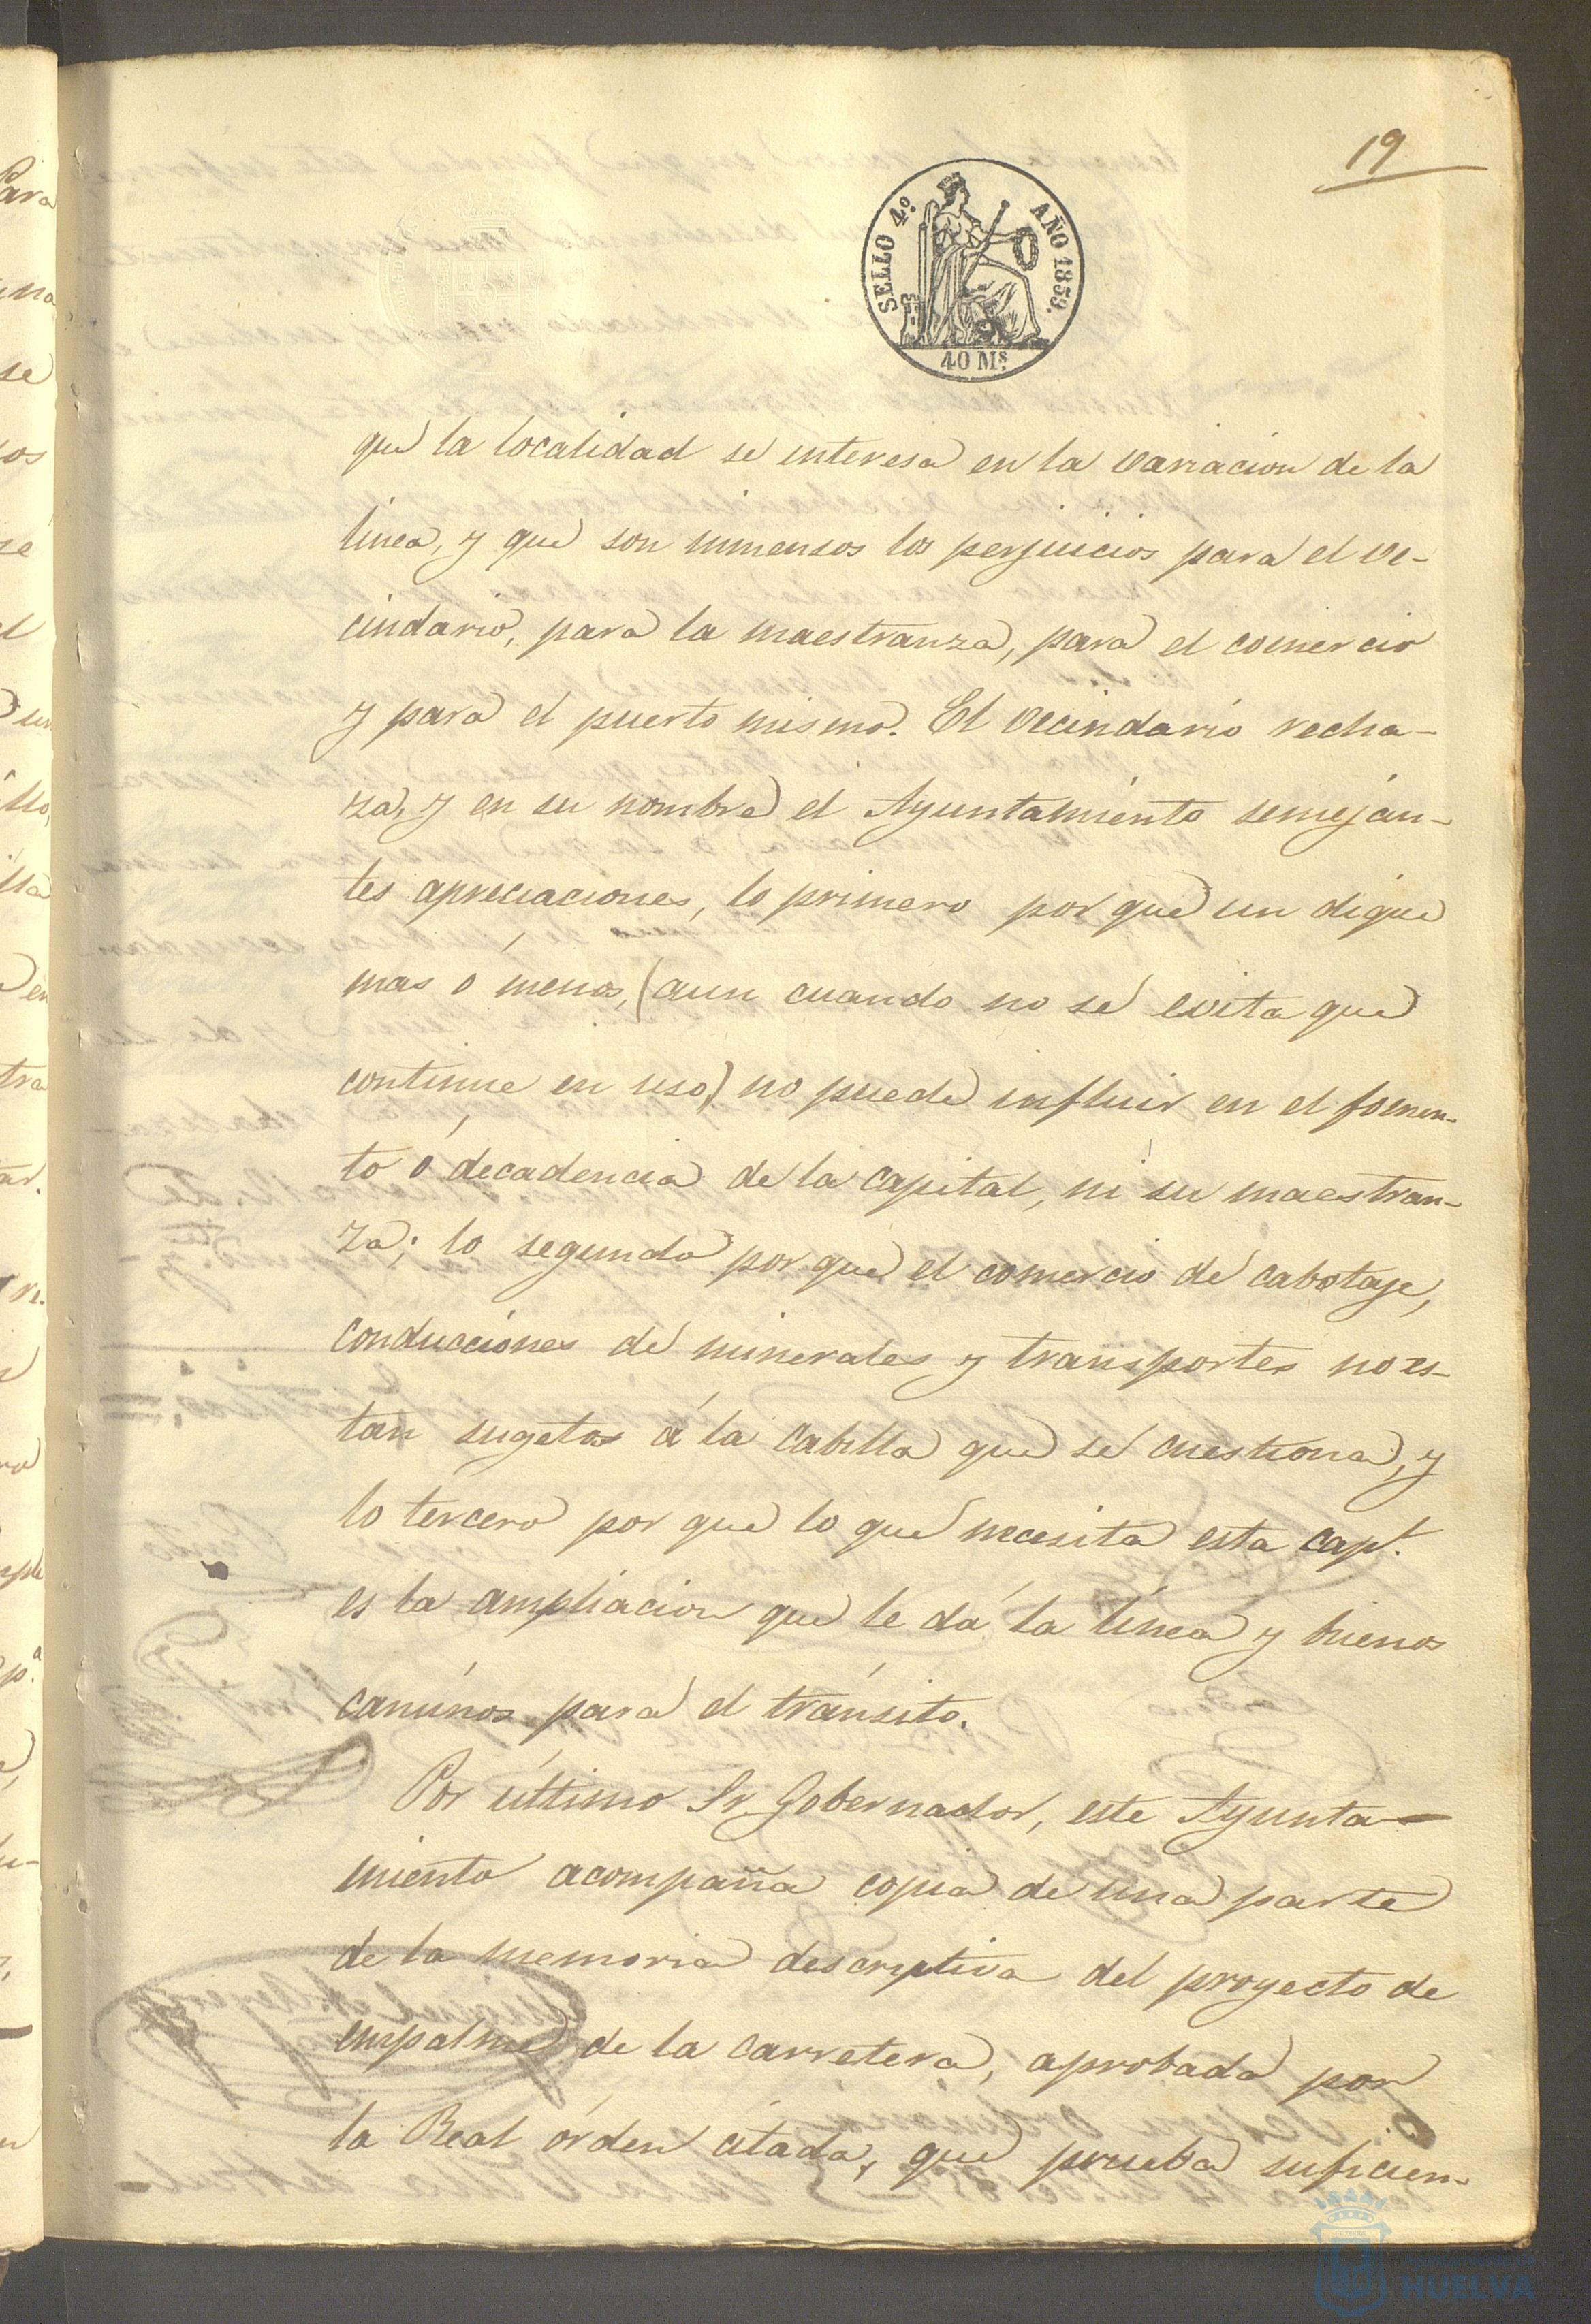 19
SELLO 4º. AÑO 1859.
40 Mˢ.
que la localidad se interesa en la variacion de la
linea, y que son inmensos los perjuicios para el ve-
cindario, para la maestranza, para el comercio
y para el puerto mismo. El vecindario recha-
za, y en su nombre el Ayuntamiento semejan-
tes apreciaciones, lo primero por que un dique
mas ó menos, (aun cuando no se evita que
continue en uso) no puede influir en el fomen-
to ó decadencia de la capital, ni su maestran-
za; lo segundo por que el comercio de cabotaje,
conducciones de minerales y transportes no es-
tan sugetos á la cabilla que se cuestiona, y
lo tercero por que lo que necesita esta capˡ.
es la ampliacion que le dá la línea y buenos
caminos para el tránsito.
Por último Sr. Gobernador, este Ayunta-
miento acompaña copia de una parte
de la memoria descriptiva del proyecto de
empalme de la carretera, aprobada por
la Real órden citada, que prueba suficien-
HUELVA